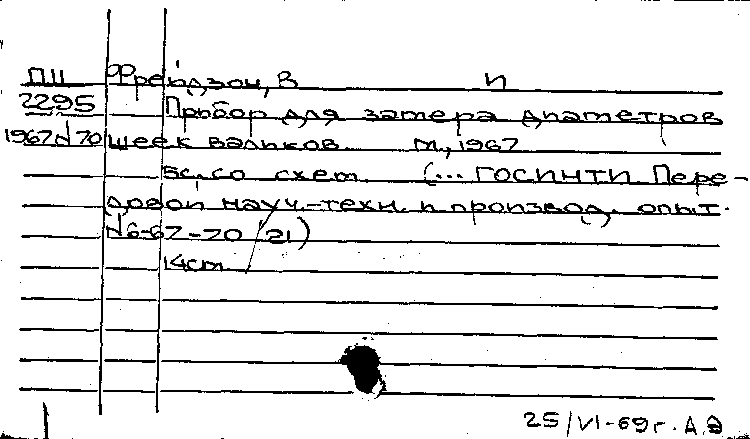 ПII Фрейдзон, В И
2295 Прибор для замера диаметров
1967 N 70 шеек валиков. М., 1967
5с. со схем. (... ГОСИНТИ Пере-
довой науч.-техн. и производ. опыт.
N 6-67-70/21)
14см
25/VI-69г. А.